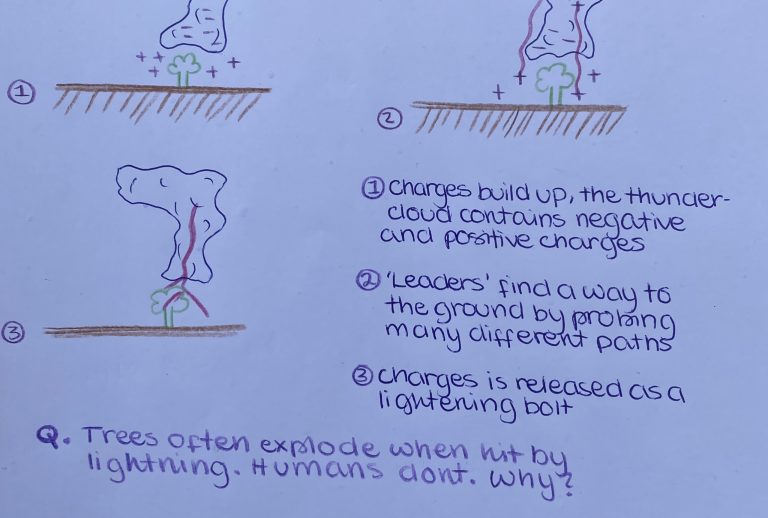 ①
②
① charges build up, the thunder-
cloud contains negative
and positive charges
② 'Leaders' find a way to
the ground by probing
many different paths
③
③ charges is released as a
lightening bolt
Q. Trees often explode when hit by
lightning. Humans dont. Why?